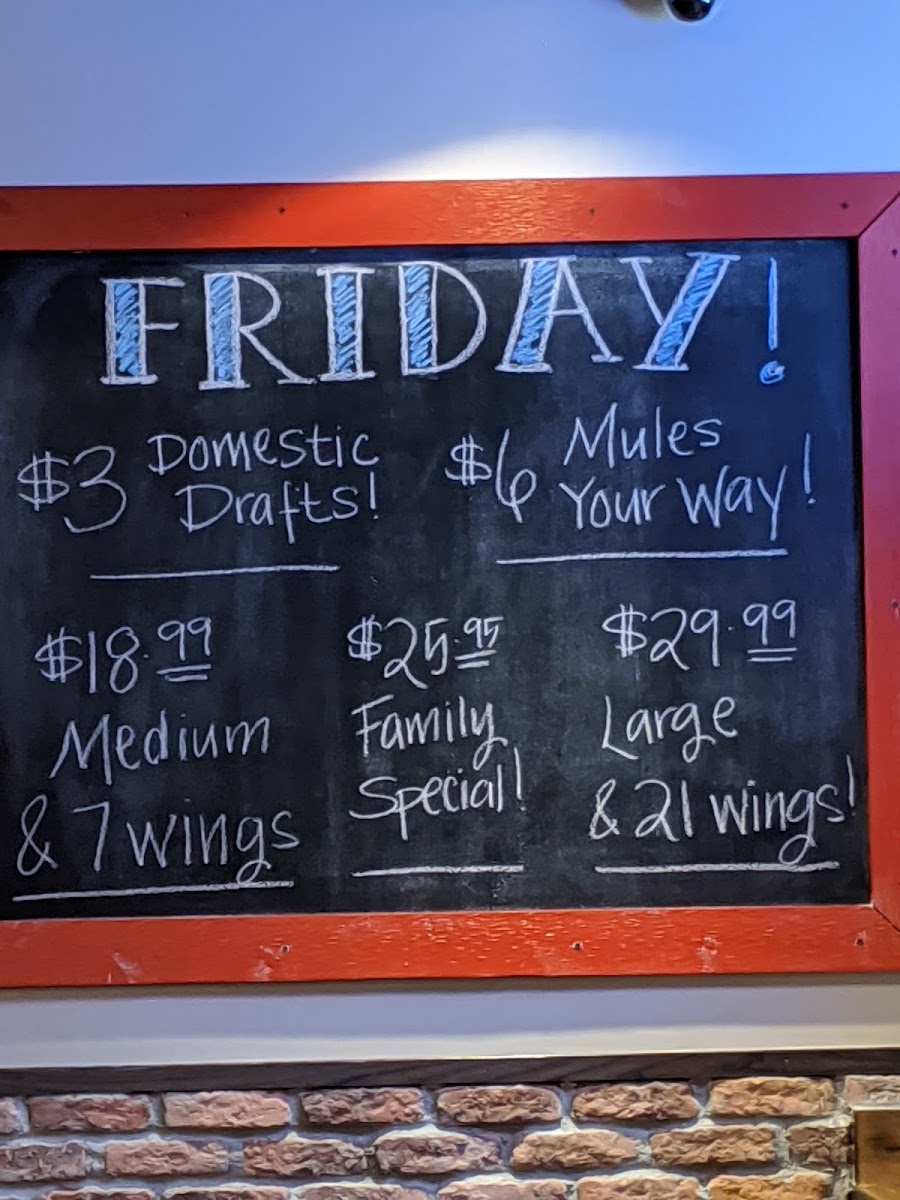 FRIDAY!
$3 Domestic Drafts!
$6 Mules Your Way!
$18.99
Medium
& 7 wings
$25.95
Family
Special!
$29.99
Large
& 21 wings!